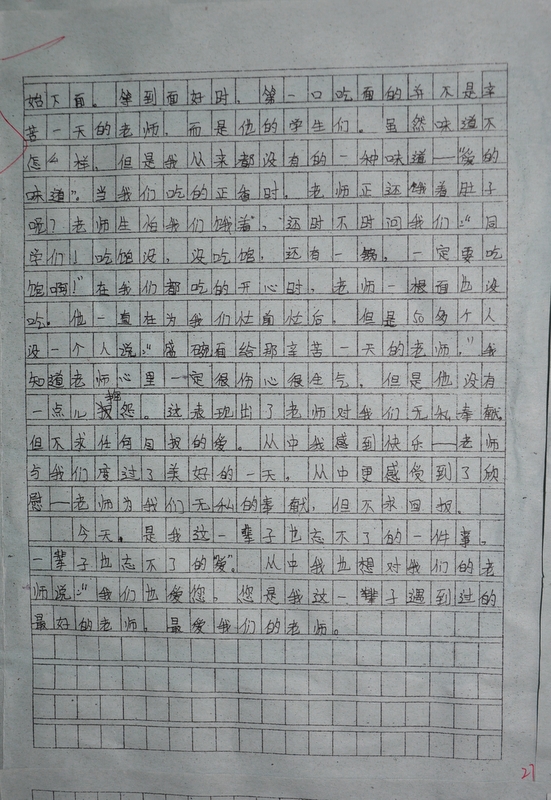 始下面。等到面好时，第一口吃面的并不是辛
苦一天的老师，而是他的学生们。虽然味道不
怎么样，但是我从来都没有的一种味道—“爱的
味道”。当我们吃的正香时，老师正还饿着肚子
呢？老师生怕我们饿着”，还时不时问我们：“同
学们！吃饱没，没吃饱，还有一锅，一定要吃
饱啊！”在我们都吃的开心时，老师一根面也没
吃。他一直在为我们忙前忙后。但是50多个人
没一个人说：“盛碗面给那辛苦一天的老师，”我
知道老师心里一定很伤心很生气，但是他没有
一点儿报怨。这表现出了老师对我们无私奉献，
但不求任何回报的爱。从中我感到快乐—老师
与我们度过了美好的一天，从中更感受到了欣
慰—老师为我们无私的奉献，但不求回报。
今天。是我这一辈子也忘不了的一件事，
一辈子也忘不了的“爱”。从中我也想对我们的老
师说：“我们也爱您，您是我这一辈子遇到过的
最好的老师，最爱我们的老师。
27